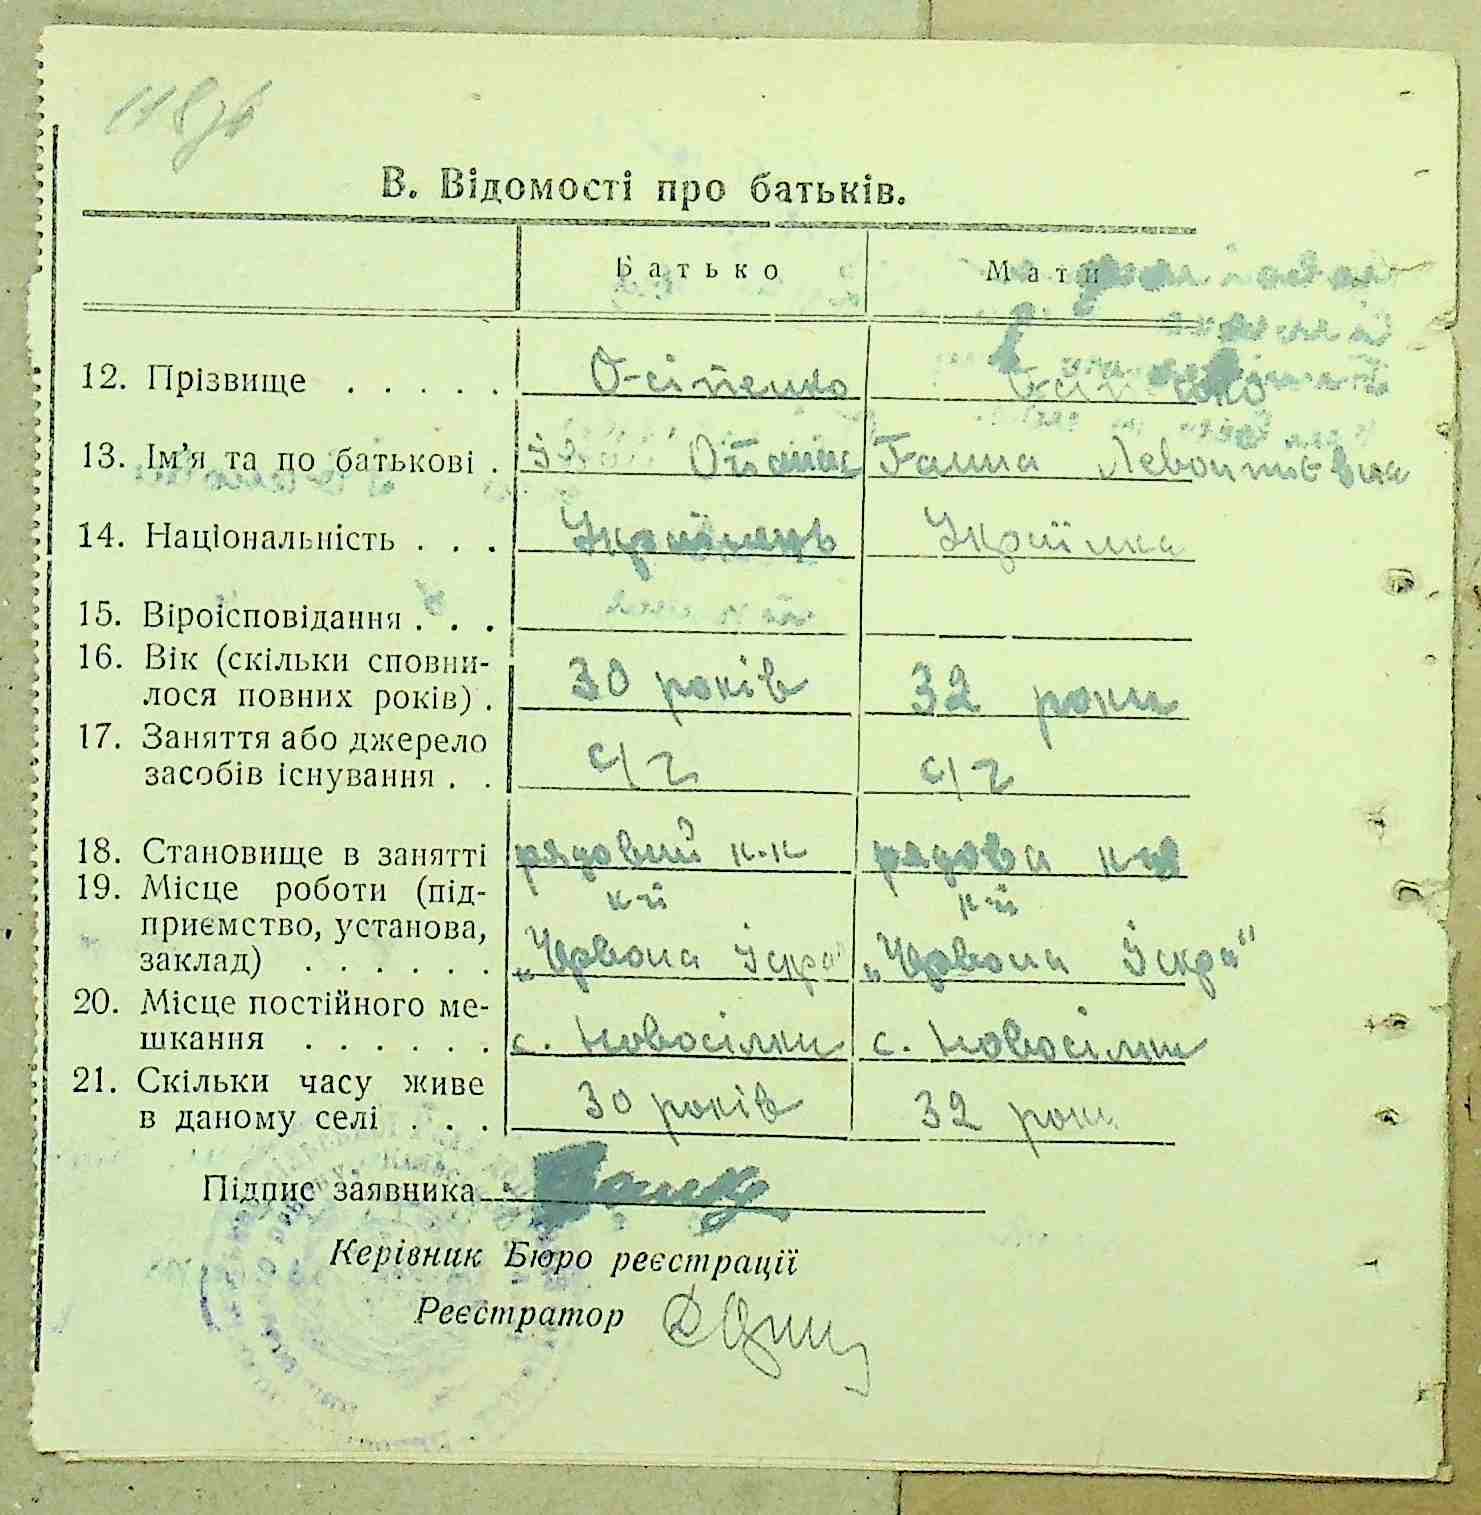 В. Відомості про батьків.
Батько Мати
12. Прізвище . . . . . Осіпенко Осіпенко
13. Ім'я та по батькові . Ганна Левонтієвна
14. Національність . . . Украінець Украінка
15. Віроісповідання . . .
16. Вік (скільки сповни-
лося повних років) . 30 років 32 роки
17. Заняття або джерело
засобів існування . . с/г с/г
18. Становище в занятті рядовий к-к рядова к-ця
19. Місце роботи (під- к-п к-п
приємство, установа,
заклад) . . . . . . „Червона Іскра" „Червона Іскра"
20. Місце постійного ме-
шкання . . . . . . с. Новосілки с. Новосілки
21. Скільки часу живе
в даному селі . . . 30 років 32 роки
Підпис заявника
Керівник Бюро реєстрації
Реєстратор